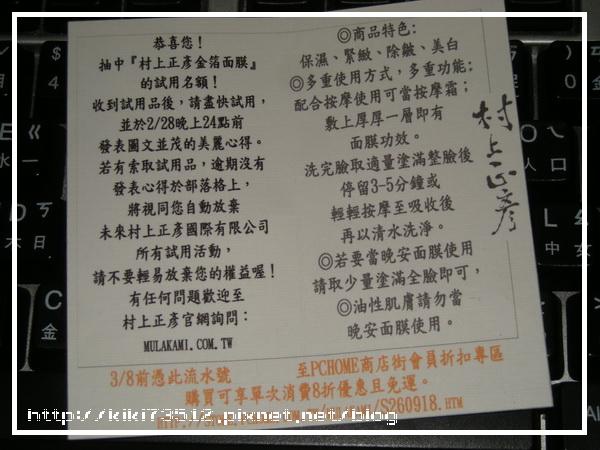 恭喜您！
抽中『村上正彥金箔面膜』
的試用名額！
收到試用品後，請盡快試用，
並於2/28晚上24點前
發表圖文並茂的美麗心得。
若有索取試用品，逾期沒有
發表心得於部落格上，
將視同您自動放棄
未來村上正彥國際有限公司
所有試用活動，
請不要輕易放棄您的權益喔！
有任何問題歡迎至
村上正彥官網詢問：
MULAKAMI.COM.TW
◎商品特色：
保濕、緊緻、除皺、美白
◎多重使用方式，多重功能：
配合按摩使用可當按摩霜；
敷上厚厚一層即有
面膜功效。
洗完臉取適量塗滿整臉後
停留3-5分鐘或
輕輕按摩至吸收後
再以清水洗淨。
◎若要當晚安面膜使用
請取少量塗滿全臉即可，
◎油性肌膚請勿當
晚安面膜使用。
村上正彥
3/8前憑此流水號
至PCHOME商店街會員折扣專區
購買可享單次消費8折優惠且免運。
/S260918.HTM
http://kiki73512.pixnet.net/blog